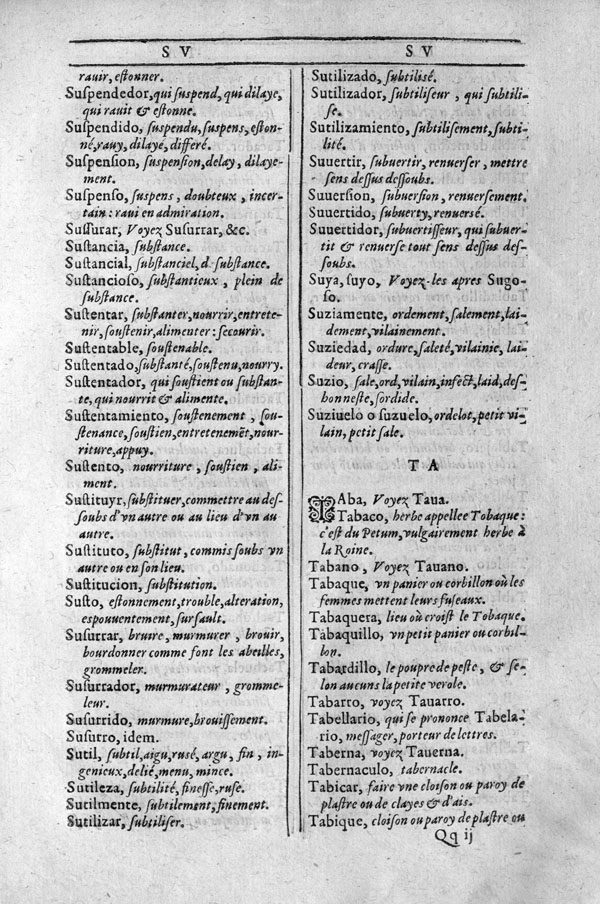 S V
rauir, estonner.
Suspendedor, qui suspend, qui dilaye,
qui rauit & estonne.
Suspendido, suspendu, suspens, eston-
né, rauy, dilayé, differé.
Suspension, suspension, delay, dilaye-
ment.
Suspenso, suspens, doubteux, incer-
tain: raui en admiration.
Sussurar, Voyez Susurrar, &c.
Sustancia, substance.
Sustancial, substanciel, d. substance.
Sustancioso, substantieux, plein de
substance.
Sustentar, substanter, nourrir, entrete-
nir, soustenir, alimenter: secourir.
Sustentable, soustenable.
Sustentado, substanté, soustenu, nourry.
Sustentador, qui soustient ou substan-
te, qui nourrit & alimente.
Sustentamiento, soustenement, sou-
stenance, soustien, entretenemēt, nour-
riture, appuy.
Sustento, nourriture, soustien, ali-
ment.
Sustituyr, substituer, commettre au des-
soubs d'vn autre ou au lieu d'vn au
autre.
Sustituto, substitut, commis soubs vn
autre ou en son lieu.
Sustitucion, substitution.
Susto, estonnement, trouble, alteration,
espouuentement, sursault.
Susurrar, bruire, murmurer, brouir,
bourdonner comme font les abeilles,
grommeler.
Susurrador, murmurateur, gromme-
leur.
Susurrido, murmure, brouissement.
Susurro, idem.
Sutil, subtil, aigu, rusé, argu, fin, in-
genieux, delié, menu, mince.
Sutileza, subtilité, finesse, ruse.
Sutilmente, subtilement, finement.
Sutilizar, subtiliser.
S V
Sutilizado, subtilisé.
Sutilizador, subtiliseur, qui subtili-
se.
Sutilizamiento, subtilisement, subti-
lité.
Suuertir, subuertir, renuerser, mettre
sens dessus dessoubs.
Suuersion, subuersion, renuersement.
Suuertido, subuerty, renuersé.
Suuertidor, subuertisseur, qui subuer-
tit & renuerse tout sens dessus des-
soubs.
Suya, suyo, Voyez-les apres Sugo-
so.
Suziamente, ordement, salement, lai-
dement, vilainement.
Suziedad, ordure, saleté, vilainie, lai-
deur, crasse.
Suzio, sale, ord, vilain, infect, laid, des-
honneste, sordide.
Suziuelo o suzuelo, ordelot, petit vi-
lain, petit sale.
T A
TAba, Voyez Taua.
Tabaco, herbe appellee Tobaque:
c'est du Petum, vulgairement herbe à
la Roine.
Tabano, Voyez Tauano.
Tabaque, vn panier ou corbillon où les
femmes mettent leurs fuseaux.
Tabaquera, lieu où croist le Tobaque.
Tabaquillo, vn petit panier ou corbil-
lon.
Tabardillo, le poupre de peste, & se-
lon aucuns la petite verole.
Tabarro, voyez Tauarro.
Tabellario, qui se prononce Tabela-
rio, messager, porteur de lettres.
Taberna, voyez Tauerna.
Tabernaculo, tabernacle.
Tabicar, faire vne cloison ou paroy de
plastre ou de clayes & d'ais.
Tabique, cloison ou paroy de plastre ou
Qq ij